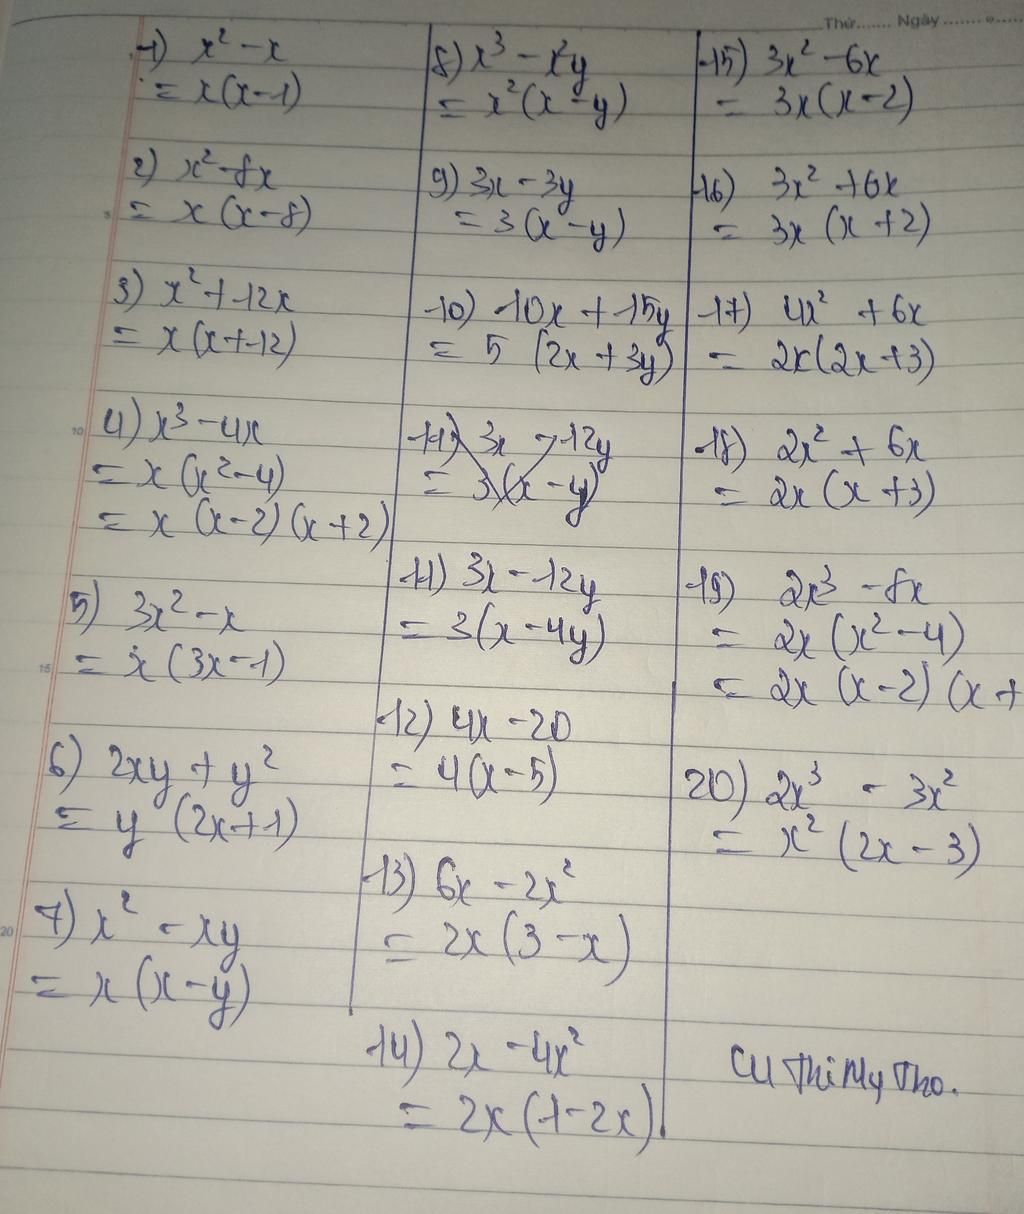 Thứ....... Ngày ....... 
1) x² - x
= x(x-1)
2) x² - 8x
= x(x-8)
3) x² + 12x
= x(x+12)
4) x³ - 4x
= x(x²-4)
= x(x-2)(x+2)
5) 3x² - x
= x(3x-1)
6) 2xy + y²
= y(2x+1)
7) x² - xy
= x(x-y)
8) x³ - x²y
= x²(x-y)
9) 3x - 3y
= 3(x-y)
10) 10x + 15y
= 5(2x+3y)
11) 3x - 12y
= 3(x-y)
11) 3x - 12y
= 3(x-4y)
12) 4x - 20
= 4(x-5)
13) 6x - 2x²
= 2x(3-x)
14) 2x - 4x²
= 2x(1-2x)
15) 3x² - 6x
= 3x(x-2)
16) 3x² + 6x
= 3x(x+2)
17) 4x² + 6x
= 2x(2x+3)
18) 2x² + 6x
= 2x(x+3)
19) 2x³ - 8x
= 2x(x²-4)
= 2x(x-2)(x+
20) 2x³ - 3x²
= x²(2x-3)
Thi My Tho.
5
10
15
20